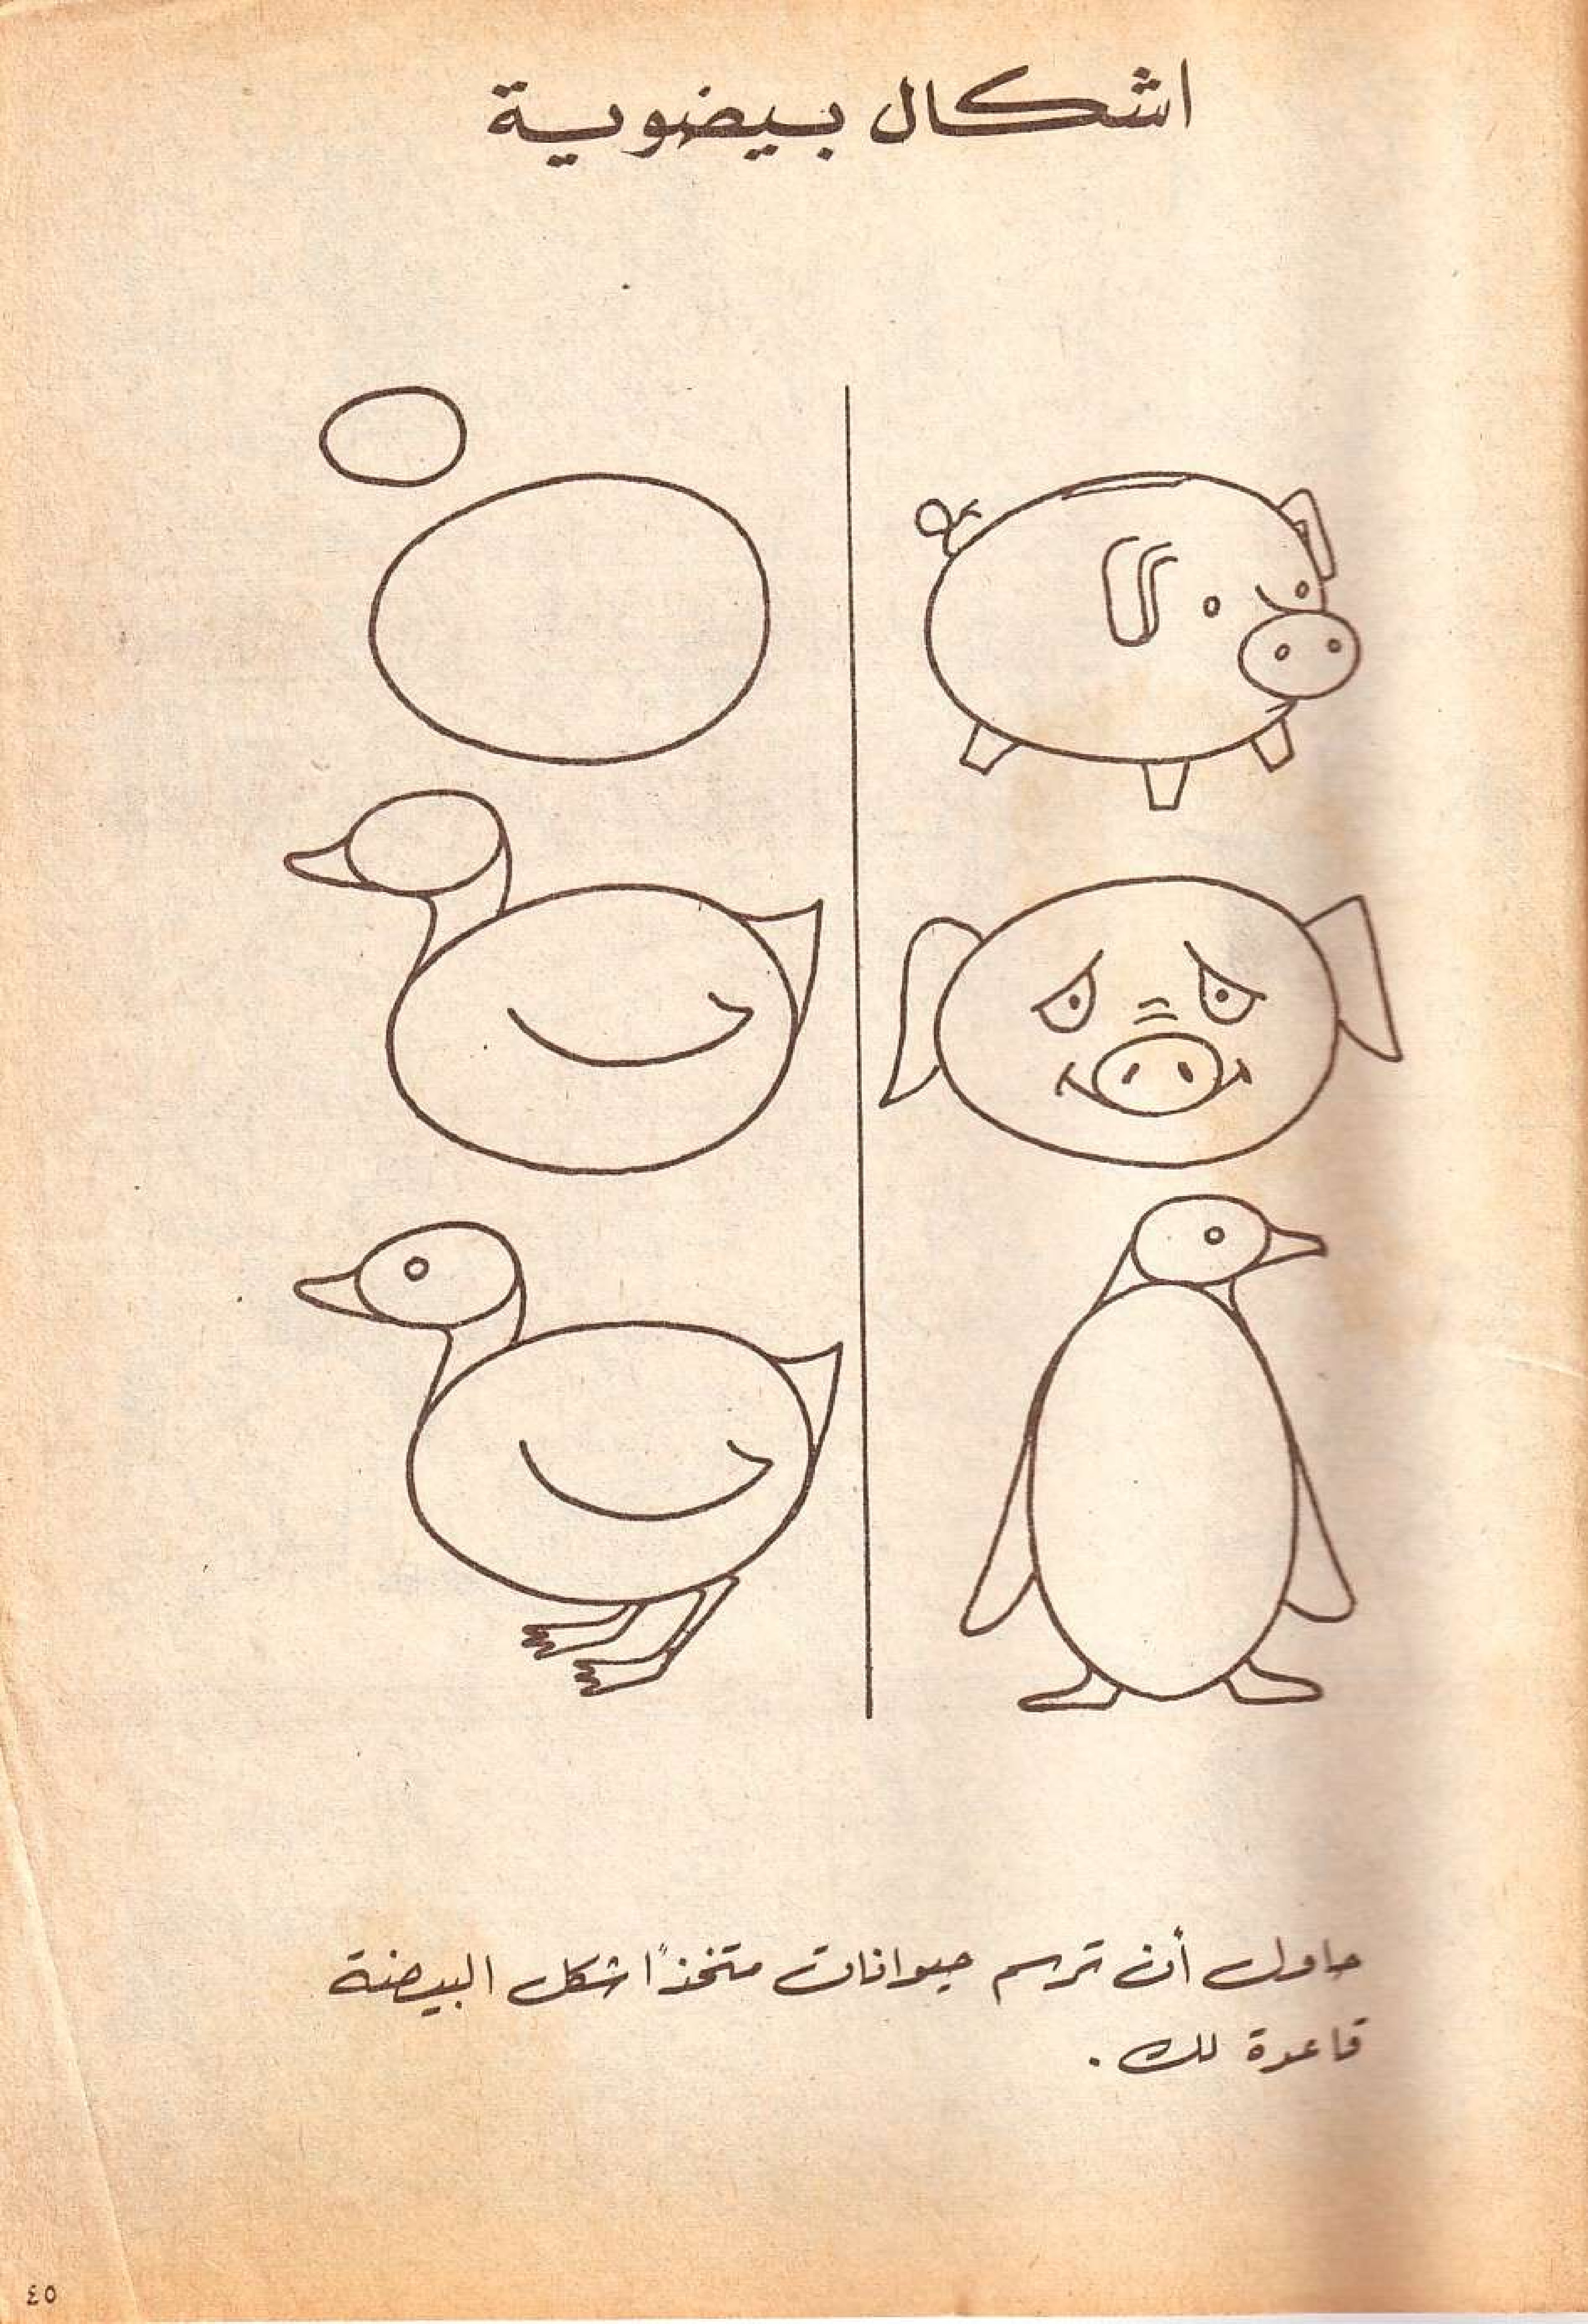 اشكال بيضوية
حاول أن ترسم حيوانات متخذاً شكل البيضة
قاعدة لك .
٤٥